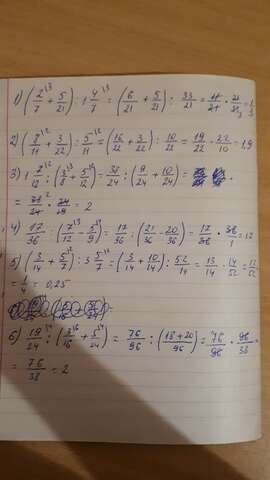 1) (2/7 + 5/21) : 1 4/7 = (6/21 + 5/21) : 33/21 = 11/21 · 21/33 = 1/3
2) (8/11 + 3/22) : 5/11 = (16/22 + 3/22) : 10/22 = 19/22 · 22/10 = 1,9
3) 1 7/12 : (3/8 + 5/12) = 38/24 : (9/24 + 10/24) =
= 38/24 · 24/19 = 2
4) 17/36 : (7/12 - 5/9) = 17/36 : (21/36 - 20/36) = 17/36 · 36/1 = 17
5) (3/14 + 5/7) : 3 5/7 = (3/14 + 10/14) : 52/14 = 13/14 · 14/52 = 13/52
= 1/4 = 0,25
6) 19/24 : (3/16 + 5/24) = 76/96 : (18+20)/96 = 76/96 · 96/38 =
= 76/38 = 2